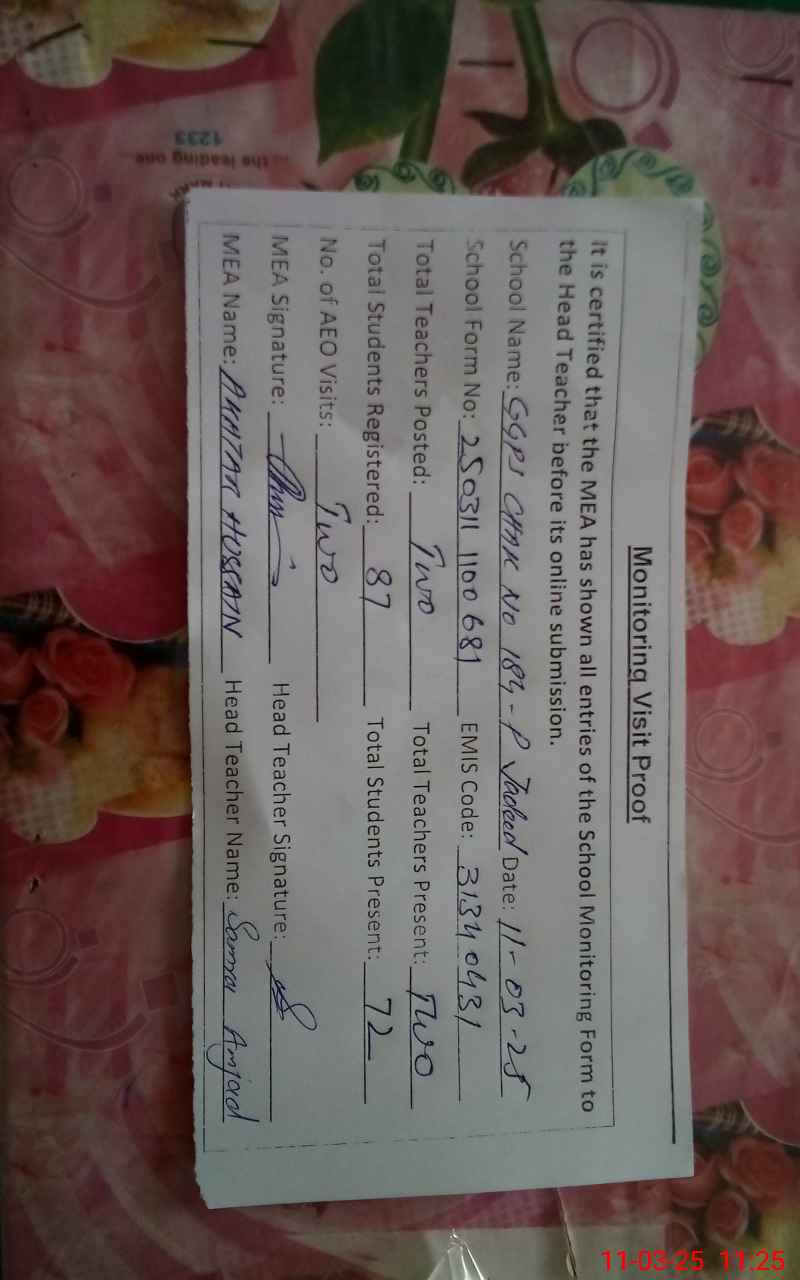 Monitoring Visit Proof
It is certified that the MEA has shown all entries of the School Monitoring Form to
the Head Teacher before its online submission.
School Name: GGPS CHAK NO 184-P Jadeed Date: 11-03-25
School Form No: 250311 1100681 EMIS Code: 31340431
Total Teachers Posted: Two Total Teachers Present: Two
Total Students Registered: 87 Total Students Present: 72
No. of AEO Visits: Two
MEA Signature: Head Teacher Signature:
MEA Name: AKHTAR HUSSAIN Head Teacher Name: Samra Amjad
the leading one
1233
11-03-25 11:25